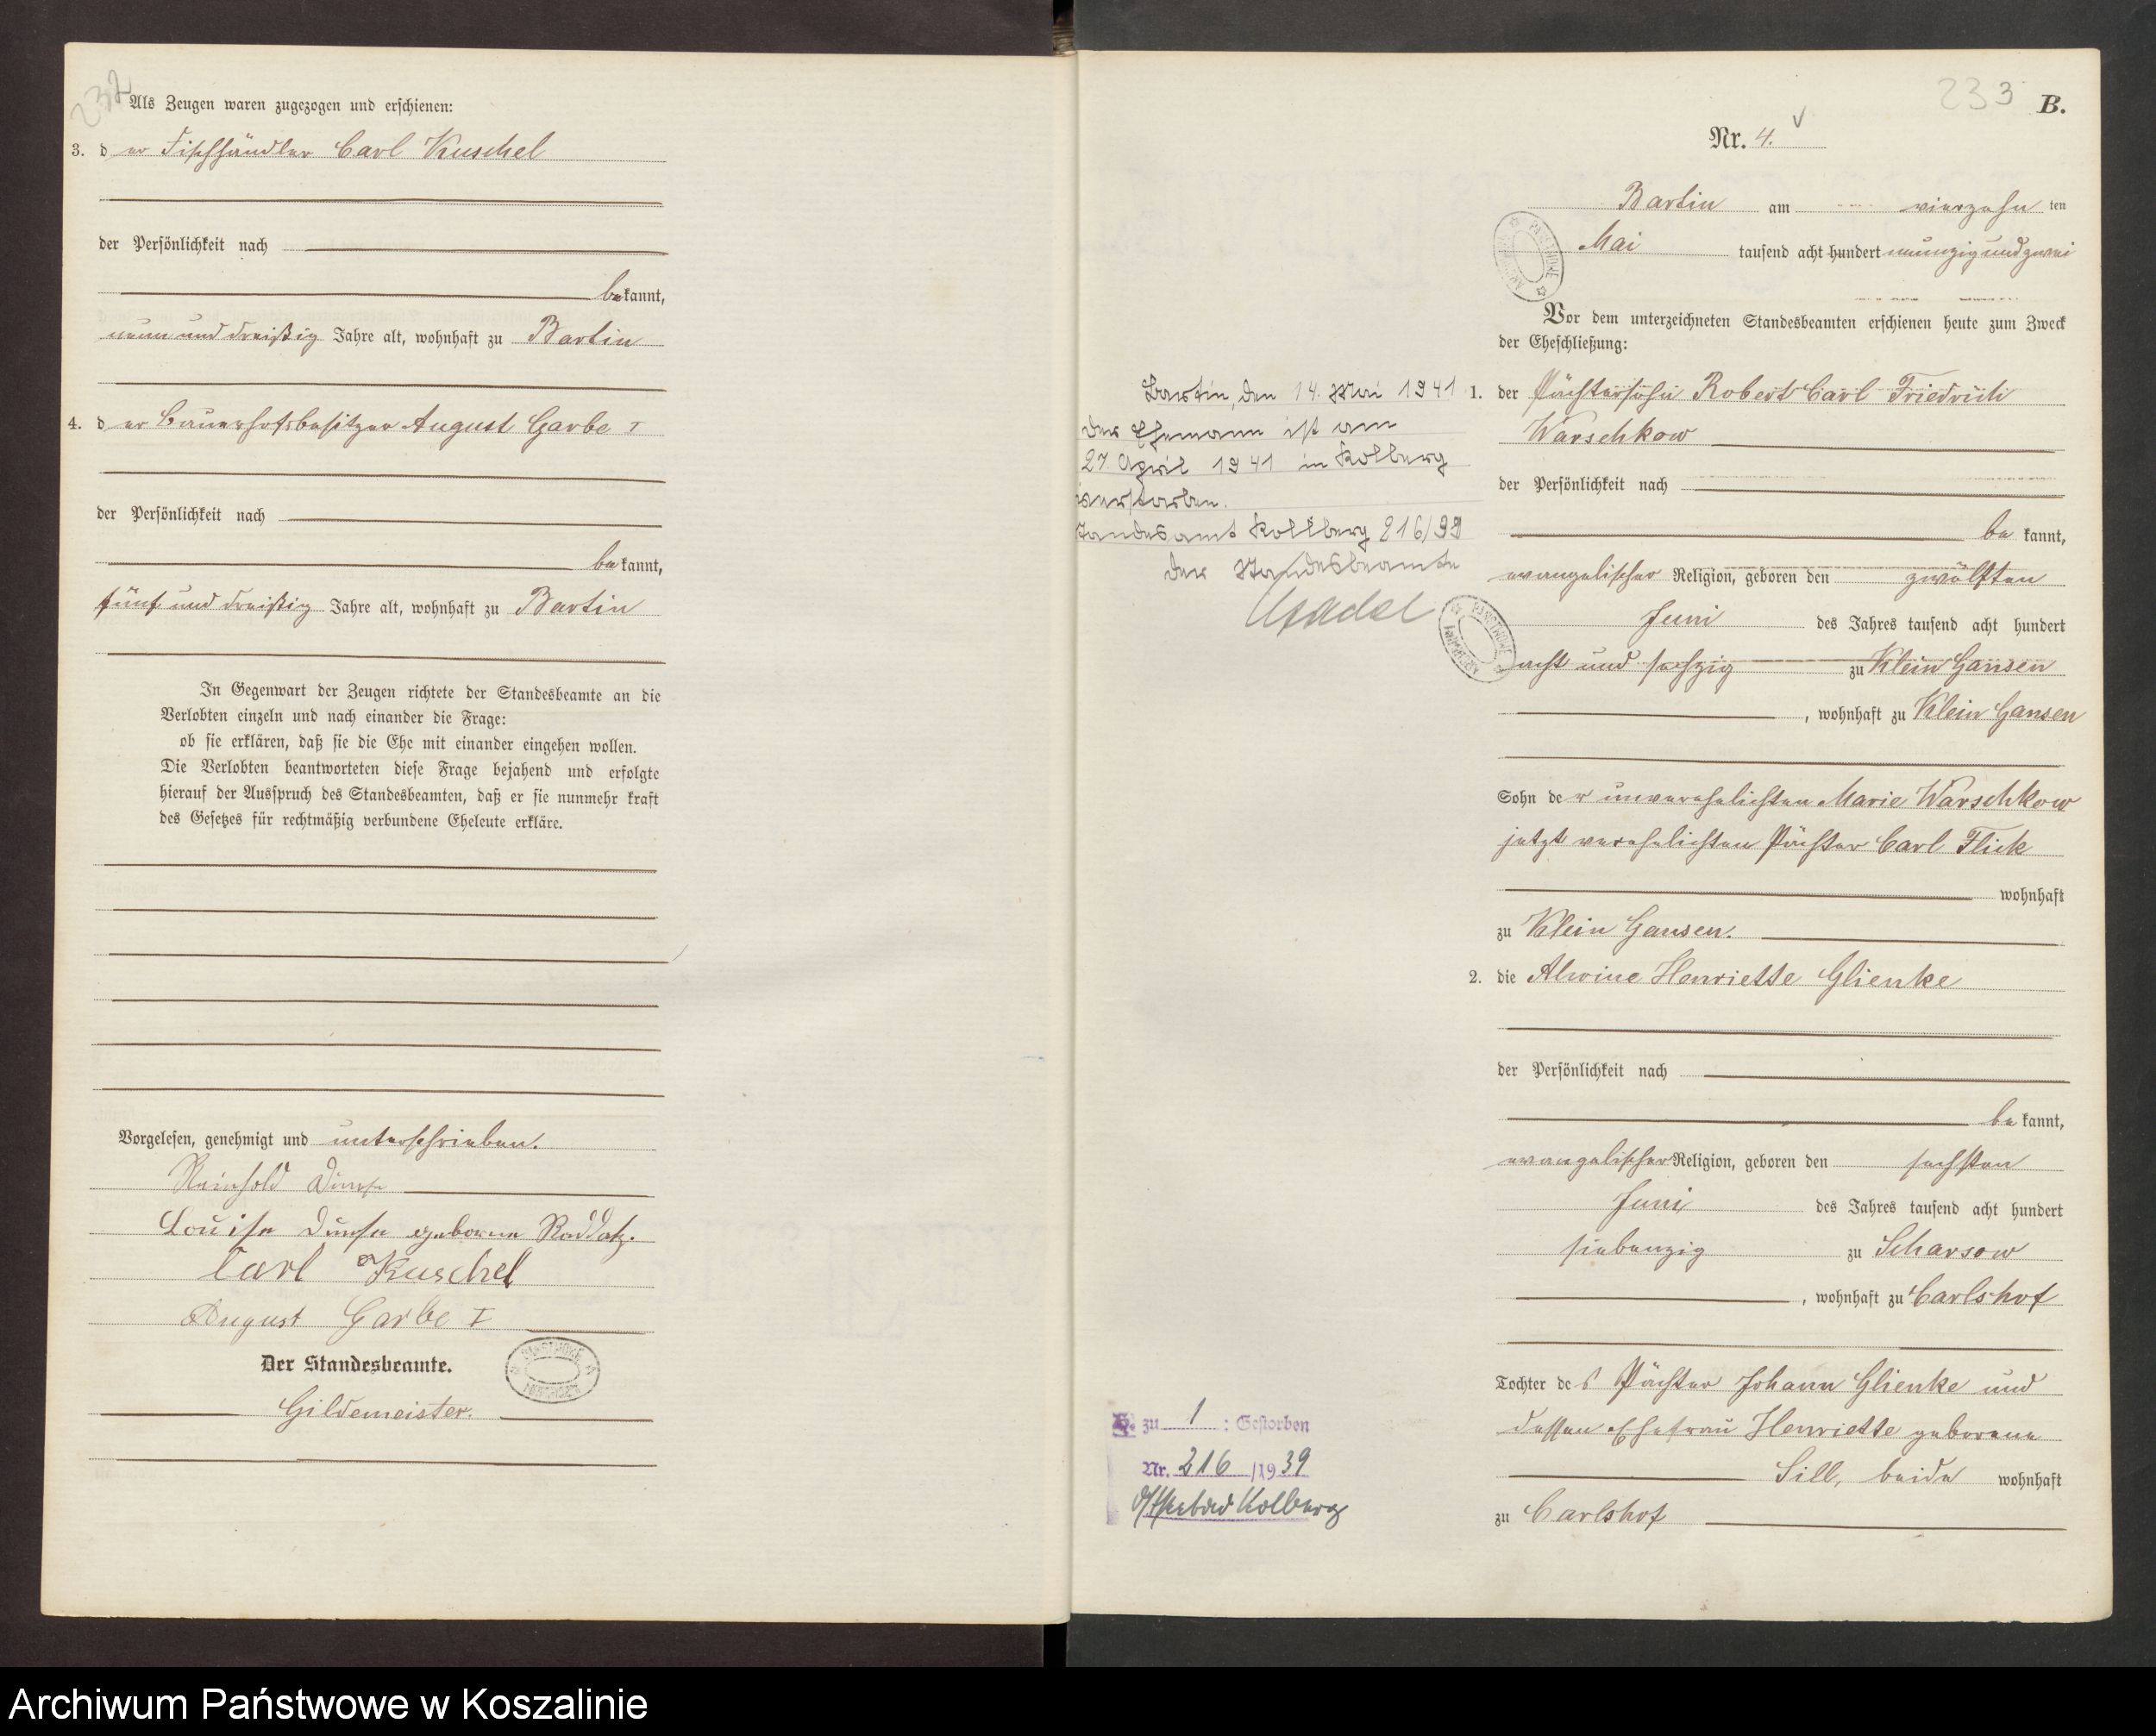 232
Als Zeugen waren zugezogen und erschienen:
3. der Fischhändler Carl Kuschel
der Persönlichkeit nach
bekannt,
neun und dreißig Jahre alt, wohnhaft zu Bartin
4. der Bauerhofsbesitzer August Garbe I
der Persönlichkeit nach
bekannt,
fünf und dreißig Jahre alt, wohnhaft zu Bartin
In Gegenwart der Zeugen richtete der Standesbeamte an die
Verlobten einzeln und nach einander die Frage:
ob sie erklären, daß sie die Ehe mit einander eingehen wollen.
Die Verlobten beantworteten diese Frage bejahend und erfolgte
hierauf der Ausspruch des Standesbeamten, daß er sie nunmehr kraft
des Gesetzes für rechtmäßig verbundene Eheleute erkläre.
Vorgelesen, genehmigt und unterschrieben.
Reinhold
Louise geborene Raddatz.
Carl Kuschel
August Garbe I
Der Standesbeamte.
Gildemeister.
233
B.
Nr. 4.
Bartin am vierzehnten
Mai tausend acht hundert neunzig und zwei
Vor dem unterzeichneten Standesbeamten erschienen heute zum Zweck
der Eheschließung:
1. der Pächtersohn Robert Carl Friedrich
Warschkow
der Persönlichkeit nach
bekannt,
evangelischer Religion, geboren den zwölften
Juni des Jahres tausend acht hundert
acht und sechzig zu Klein Gansen
, wohnhaft zu Klein Gansen
Sohn der unverehelichten Marie Warschkow
jetzt verehelichten Pächter Carl Flick
wohnhaft
zu Klein Gansen.
2. die Alwine Henriette Glienke
der Persönlichkeit nach
bekannt,
evangelischer Religion, geboren den sechsten
Juni des Jahres tausend acht hundert
siebenzig zu Scharsow
, wohnhaft zu Carlshof
Tochter des Pächter Johann Glienke und
dessen Ehefrau Henriette geborene
Sill, beide wohnhaft
zu Carlshof
Bartin, den 14. Mai 1941
Der Ehemann ist am
27. April 1941 in Kolberg
verstorben.
Standesamt Kolberg 216/39
Der Standesbeamte
zu 1 : Gestorben
Nr. 216 /1939
Ostseebad Kolberg
Archiwum Państwowe w Koszalinie